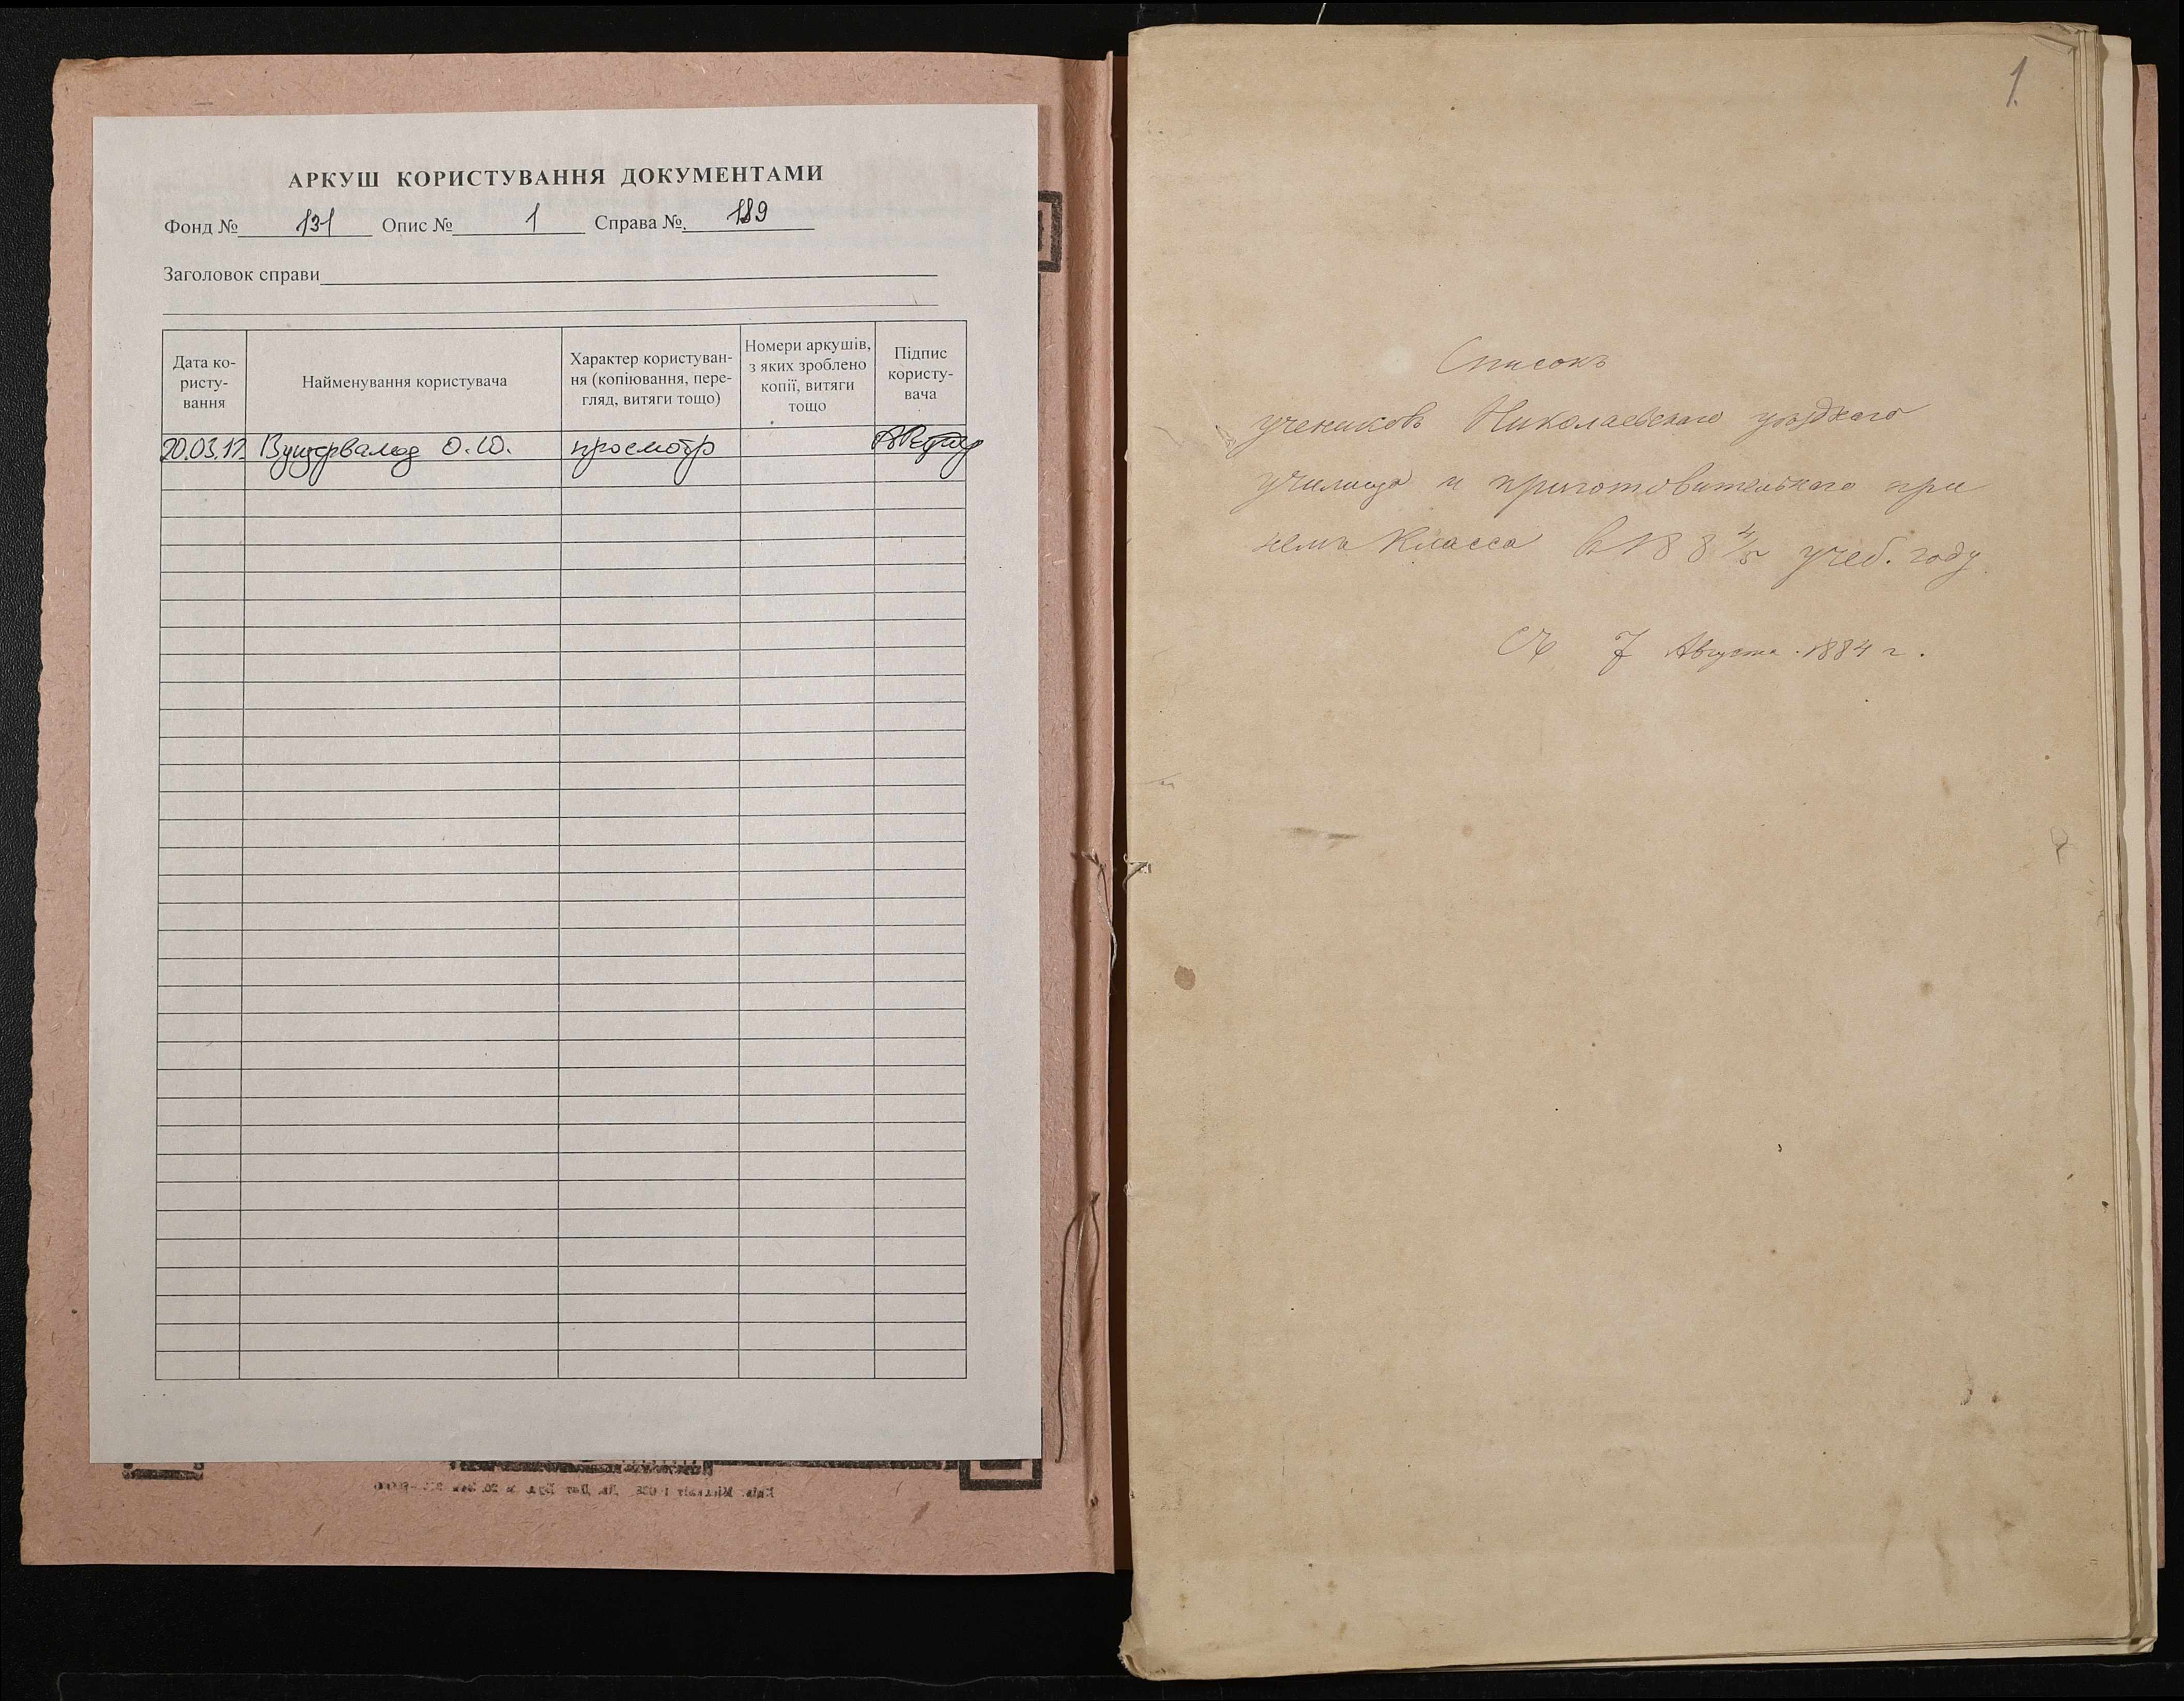 АРКУШ КОРИСТУВАННЯ ДОКУМЕНТАМИ
Фонд № 131 Опис № 1 Справа № 189
Заголовок справи
Дата ко-
ристу-
вання
Найменування користувача
Характер користуван-
ня (копіювання, пере-
гляд, витяги тощо)
Номери аркушів,
з яких зроблено
копії, витяги
тощо
Підпис
користу-
вача
20.03.12 О.Ю. просмотр
1.
Списокъ
учениковъ Николаевскаго уѣзднаго
училища и приготовительнаго при
немъ класса в 188 4/5 учеб. году
Съ 7 Августа 1884 г.